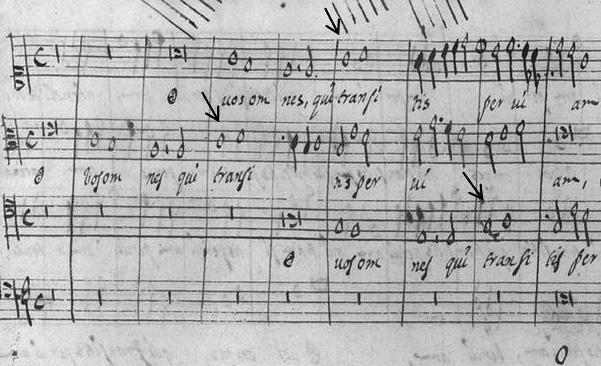 O vos om nes, qui transi tis per vi am
O Vos om nes qui transi tis per vi am,
O vos om nes qui transi tis per